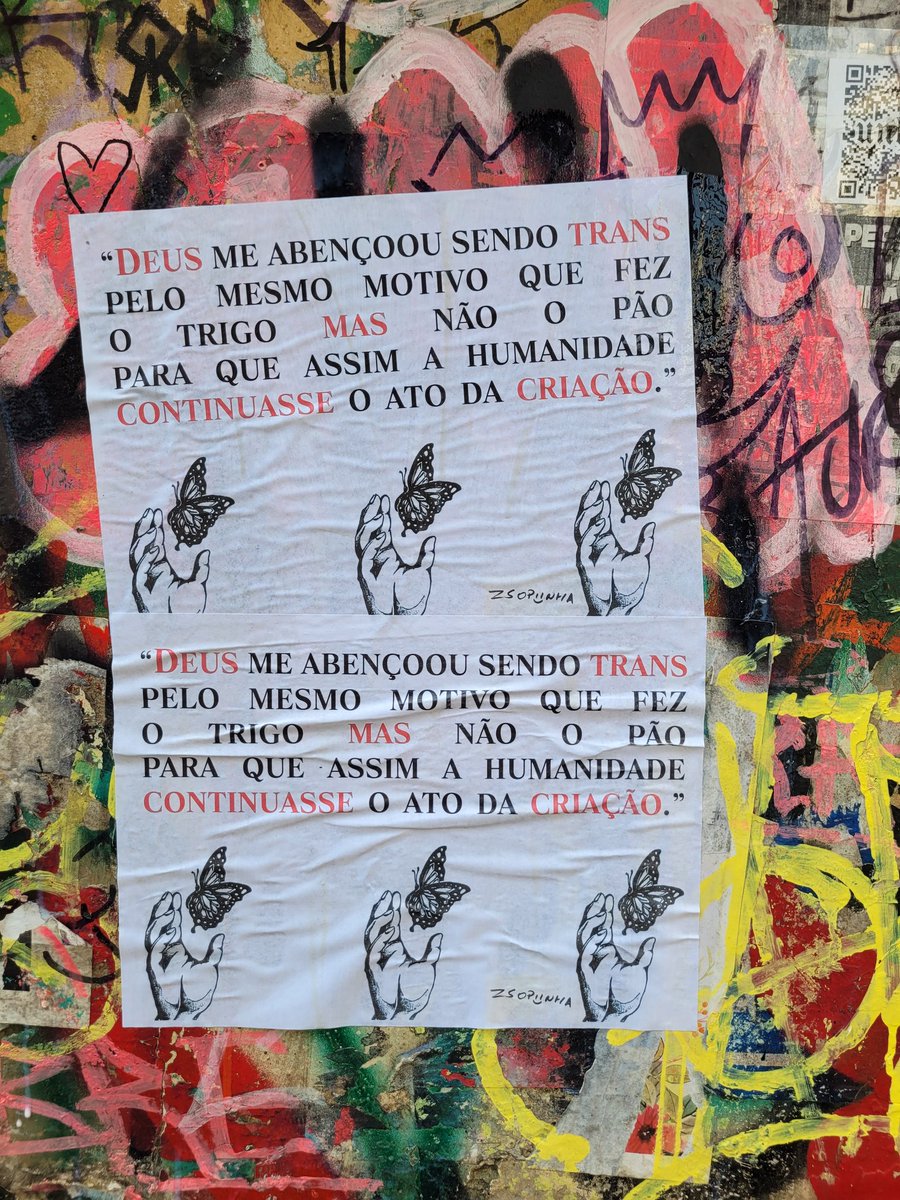 “DEUS ME ABENÇOOU SENDO TRANS
PELO MESMO MOTIVO QUE FEZ
O TRIGO MAS NÃO O PÃO
PARA QUE ASSIM A HUMANIDADE
CONTINUASSE O ATO DA CRIAÇÃO.”
ZSOPIINHA
“DEUS ME ABENÇOOU SENDO TRANS
PELO MESMO MOTIVO QUE FEZ
O TRIGO MAS NÃO O PÃO
PARA QUE ASSIM A HUMANIDADE
CONTINUASSE O ATO DA CRIAÇÃO.”
ZSOPIINHA